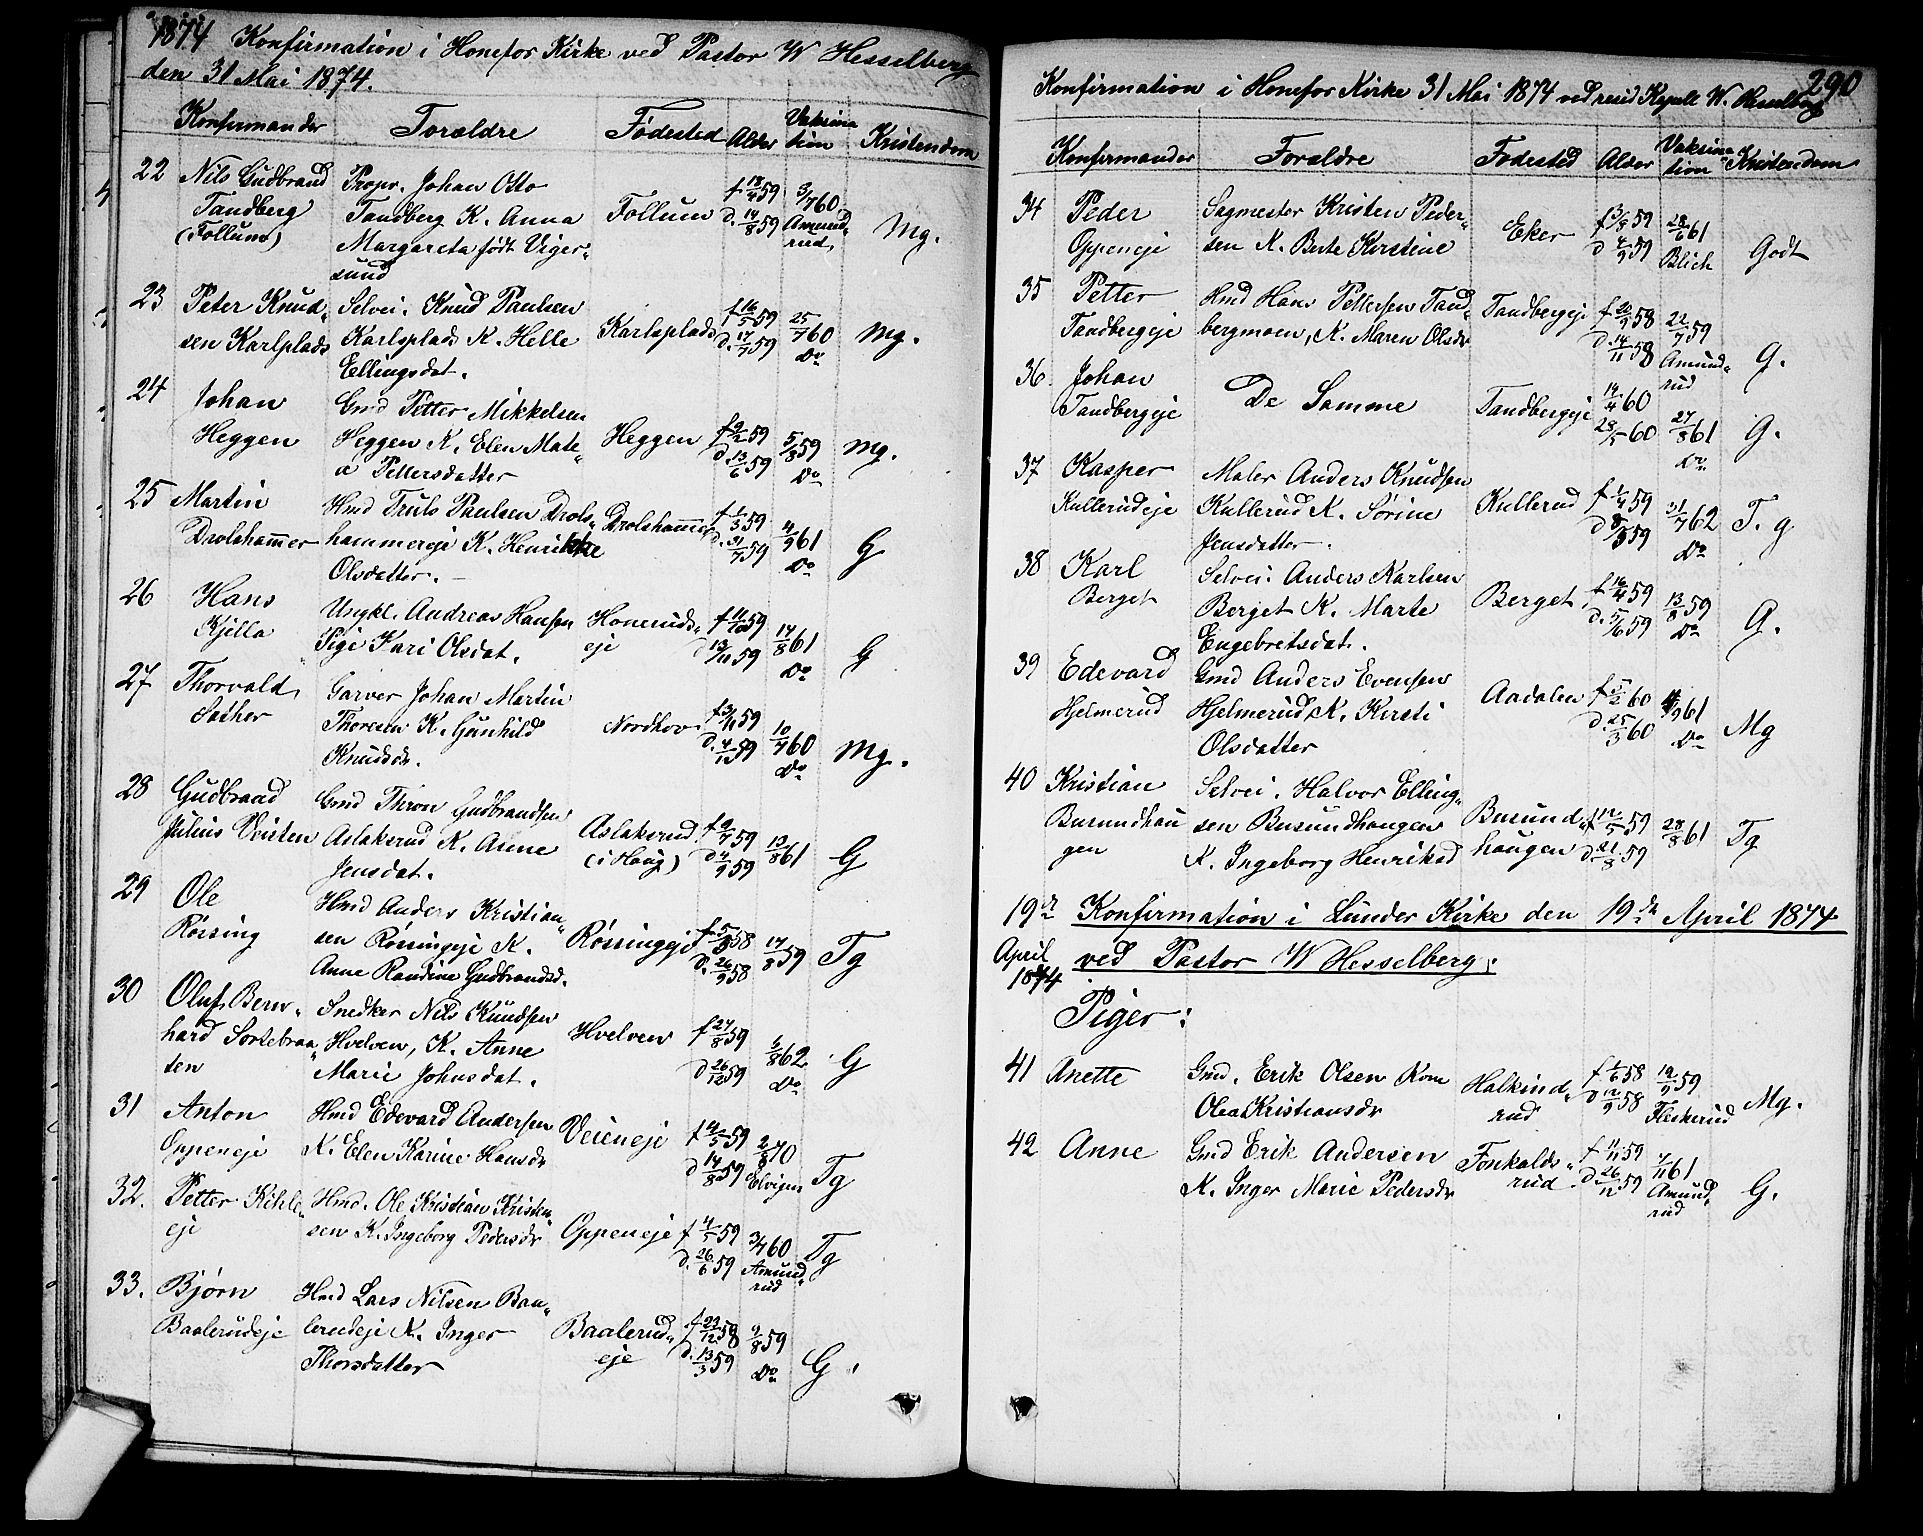 1874 Konfirmation i Honefos Kirke ved Pastor W Hesselberg
den 31 Mai 1874.
Konfirmander Forældre Fødested Alder Vaksination Kristendom
22 Nils Gudbrand Propr. Johan Otto f 18/4 59 3/7 60
Tandberg Tandberg K. Anna Follum d. 14/8 59 Amundrud Mg.
(Follum) Margareta født Viger-
sund
23 Peter Knud- Selvei. Knud Paulsen f 16/5 59 25/7 60
sen Karlplads Karlsplads K. Helle Karlsplads d. 17/7 59 Do Mg.
Ellingsdat.
24 Johan Gmd Petter Mikkelsen
Heggen Heggen K. Elen Mate- Heggen f 9/2 59 5/8 59 Mg.
a Pettersdatter d. 13/6 59 Do
25 Martin Hmd Truls Paulsen Drols- Drolshammer f 1/3 59 4/9 61
Drolshammer hammereje K. Henrikke d. 31/7 59 Do G
Olsdatter. -
26 Hans Ungkl. Andreas Hansen Honeruds- f 11/10 59 17/8 61
Kjilla Pige Kari Olsdat. eje d 13/11 59 Do G
27 Thorvald Garver Johan Martin
Sæther Thoresen K. Gunhild Nordhov f 3/11 59 10/7 60 Mg.
Knudsdr. d. 4/12 59 Do
28 Gudbrand Gmd Thron Gudbrandsen
Julius Veisten Aslaksrud K. Anne Aslaksrud f 9/7 59 13/8 61 G
Jensdat. (i Haug) d 4/9 59
29 Ole Hmd Anders Kristian-
Røssing sen Røssingeje K. Røssingeje f. 5/8 58 17/8 59 Tg
Anne Randine Gudbrandsd. d. 26/9 58
30 Oluf Bern- Snedker Nils Knudsen
hard Sortebraa- Hvelven, K. Anne Hvelven f 27/8 59 6/8 62 G
ten Marie Johnsdat. d 26/12 59 Do
31 Anton Hmd Edevard Andersen Veieneje f 19/5 59 2/8 70
Oppeneje K. Elen Karine Hansdr d 14/8 59 Elvigen Tg
32. Petter Kihle- Hmd. Ole Kristian Kristen-
eje sen K. Ingeborg Pedersdr Oppeneje f 4/5 59 3/7 60 Tg
d. 26/6 59 Amundrud
33. Bjørn Hmd Lars Nilsen Baa-
Baalerudeje lerudeje K. Inger Baalerud- f 23/12 58 9/8 59
Thorsdatter eje d. 13/3 59 Do G.
290
Konfirmation i Honefos Kirke 31 Mai 1874 ved resid Kapell W. Hesselberg
Konfirmander Forældre Fødested Alder Vaksination Kristendom
34 Peder Sagmester Kristen Peder- Eker f 3/8 59 28/6 61
Oppeneje sen K. Berte Kirstine d 4/9 59 Blich Godt
35 Petter Hmd Hans Pettersen Tand- Tandbergeje f 20/9 58 22/7 59
Tandbergeje bergmoen, K. Maren Olsdr d. 14/11 58 Amundrud G.
36. Johan De Samme Tandbergeje 14/4 60 27/8 61
Tandbergeje 28/5 60 Do G.
37 Kasper Maler Anders Knudsen
Kullerudeje Kullerud K. Sørine Kullerud f 1/4 59 31/7 62 T. g
Jensdatter. d 8/5 59 Do
38 Karl Selvei. Anders Karlsen
Berget Berget K. Marte Berget f 16/4 59 13/8 59 G.
Engebretsdat. d. 5/6 59 Do
39 Edevard Gmd Anders Evensen
Hjelmerud Hjelmerud K. Kirsti Aadalen f 5/2 60 4/9 61 Mg
Olsdatter d. 25/3 60 Do
40 Kristian Selvei. Halvor Elling-
Busundhau sen Busundhaugen Busund- f 12/5 59 28/8 61 Tg
gen K. Ingeborg Henriksd haugen d. 21/8 59
19de Konfirmation i Lunder Kirke den 19de April 1874
April ved Pastor W Hesselberg:
1874
Piger:
41 Anette Gmd. Erik Olsen Kone Halkind- f 1/6 58 19/9 59
Olea Kristiansdr rud d 12/9 58 Fleskerud Mg.
42 Anne Gmd Erik Andersen Fonkalds- f 11/11 59 7/11 61
K. Inger Marie Pedersdr rud d. 26/12 59 Amundrud G.